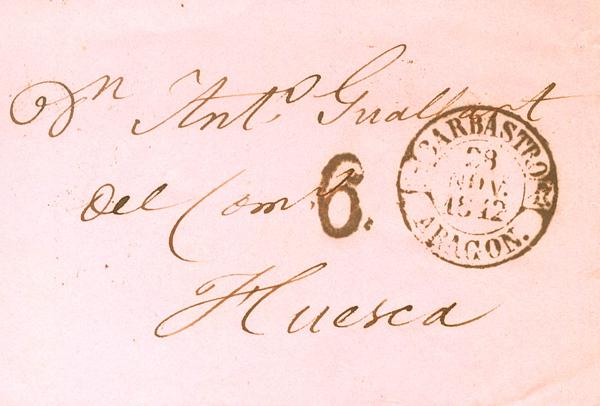 Dn Anto Gualbert
BARBASTRO
28
NOV.
1842
ARAGON.
del Como
6.
Huesca